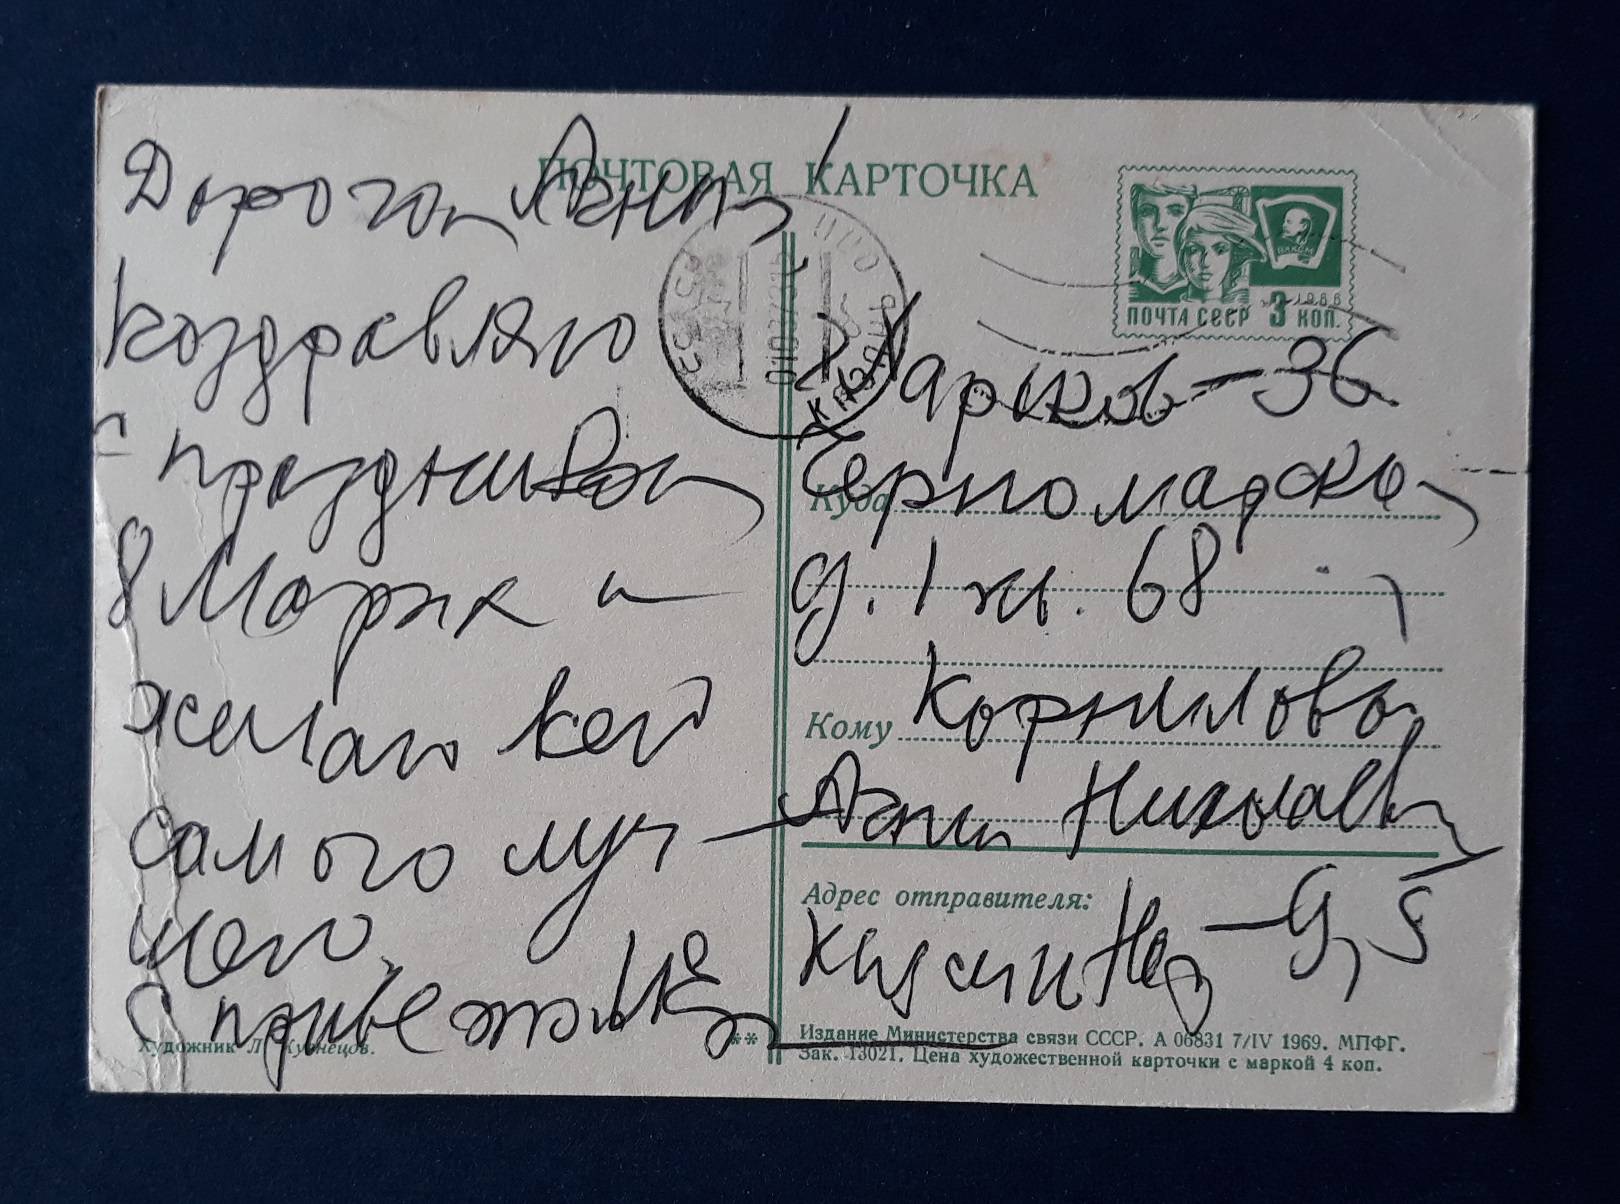 ПОЧТОВАЯ КАРТОЧКА
Дорогая Анна!
Поздравляю
с праздником
8 Марта и
желаю всего
самого луч-
шего.
С приветом
Художник Л. Кузнецов.
**
ВЛКСМ
1966
ПОЧТА СССР 3 КОП.
г. Харьков-36
Куда
д. 1 кв. 68
Кому Корнилова
Анна Николаев
Адрес отправителя:
Издание Министерства связи СССР. А 06831 7/IV 1969. МПФГ.
Зак. 13021. Цена художественной карточки с маркой 4 коп.